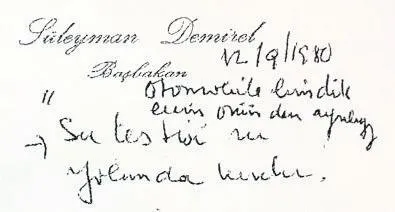 Süleyman Demirel
12/9/1980
Başbakan
"
Otomobile bindik
evin önünden ayrılıyoruz
→ Su testisi su
yolunda kırılır.